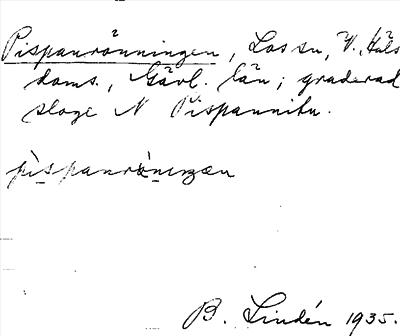 Pispanrönningen, Los sn, V. Häls
doms., Gävl. län; graderad
sloge N Pispannitu.
pispanröningen
B. Lindén 1935.